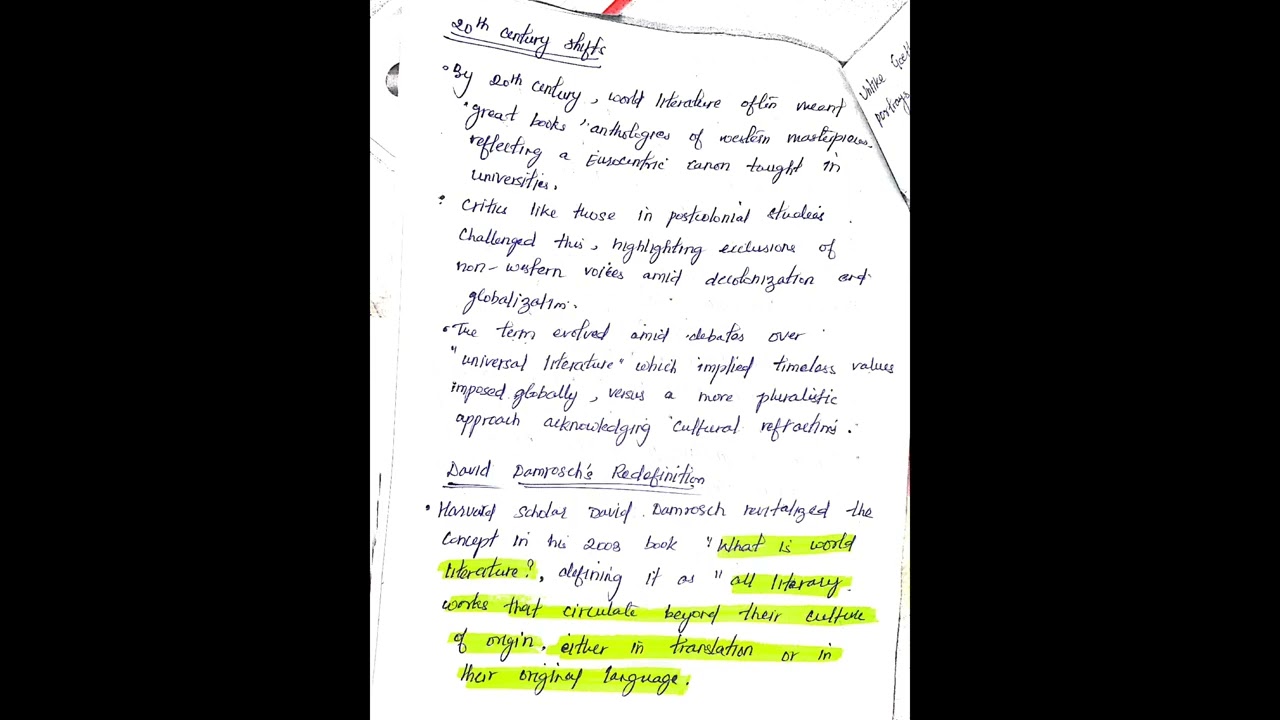 20th century shifts
By 20th century, world literature often meant
"great books" anthologies of western masterpieces
reflecting a Eurocentric canon taught in
universities.
Critics like those in postcolonial studies
challenged this, highlighting exclusions of
non-western voices amid decolonization and
globalization.
The term evolved amid debates over
"universal literature" which implied timeless values
imposed globally, versus a more pluralistic
approach acknowledging cultural refractions.
David Damrosch's Redefinition
Harvard scholar David Damrosch revitalized the
concept in his 2003 book "What is world
literature?, defining it as "all literary
works that circulate beyond their culture
of origin, either in translation or in
their original language.
Unlike
portrays